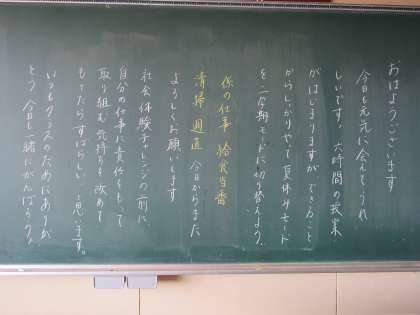 おはようございます
今日も元気に会えてうれ
しいです。六時間の授業
がはじまりますができること
からしっかりやって夏休みモード
を二学期モードに切り替えよう。
係の仕事 給食当番
清掃 週直 今日からまた
よろしくお願いします
社会体験チャレンジの前に、
自分の仕事に責任をもって
取り組む気持ちを改めて
もてたらすばらしいと思います。
いつもクラスのためにありが
とう。今日も一緒にがんばろう。